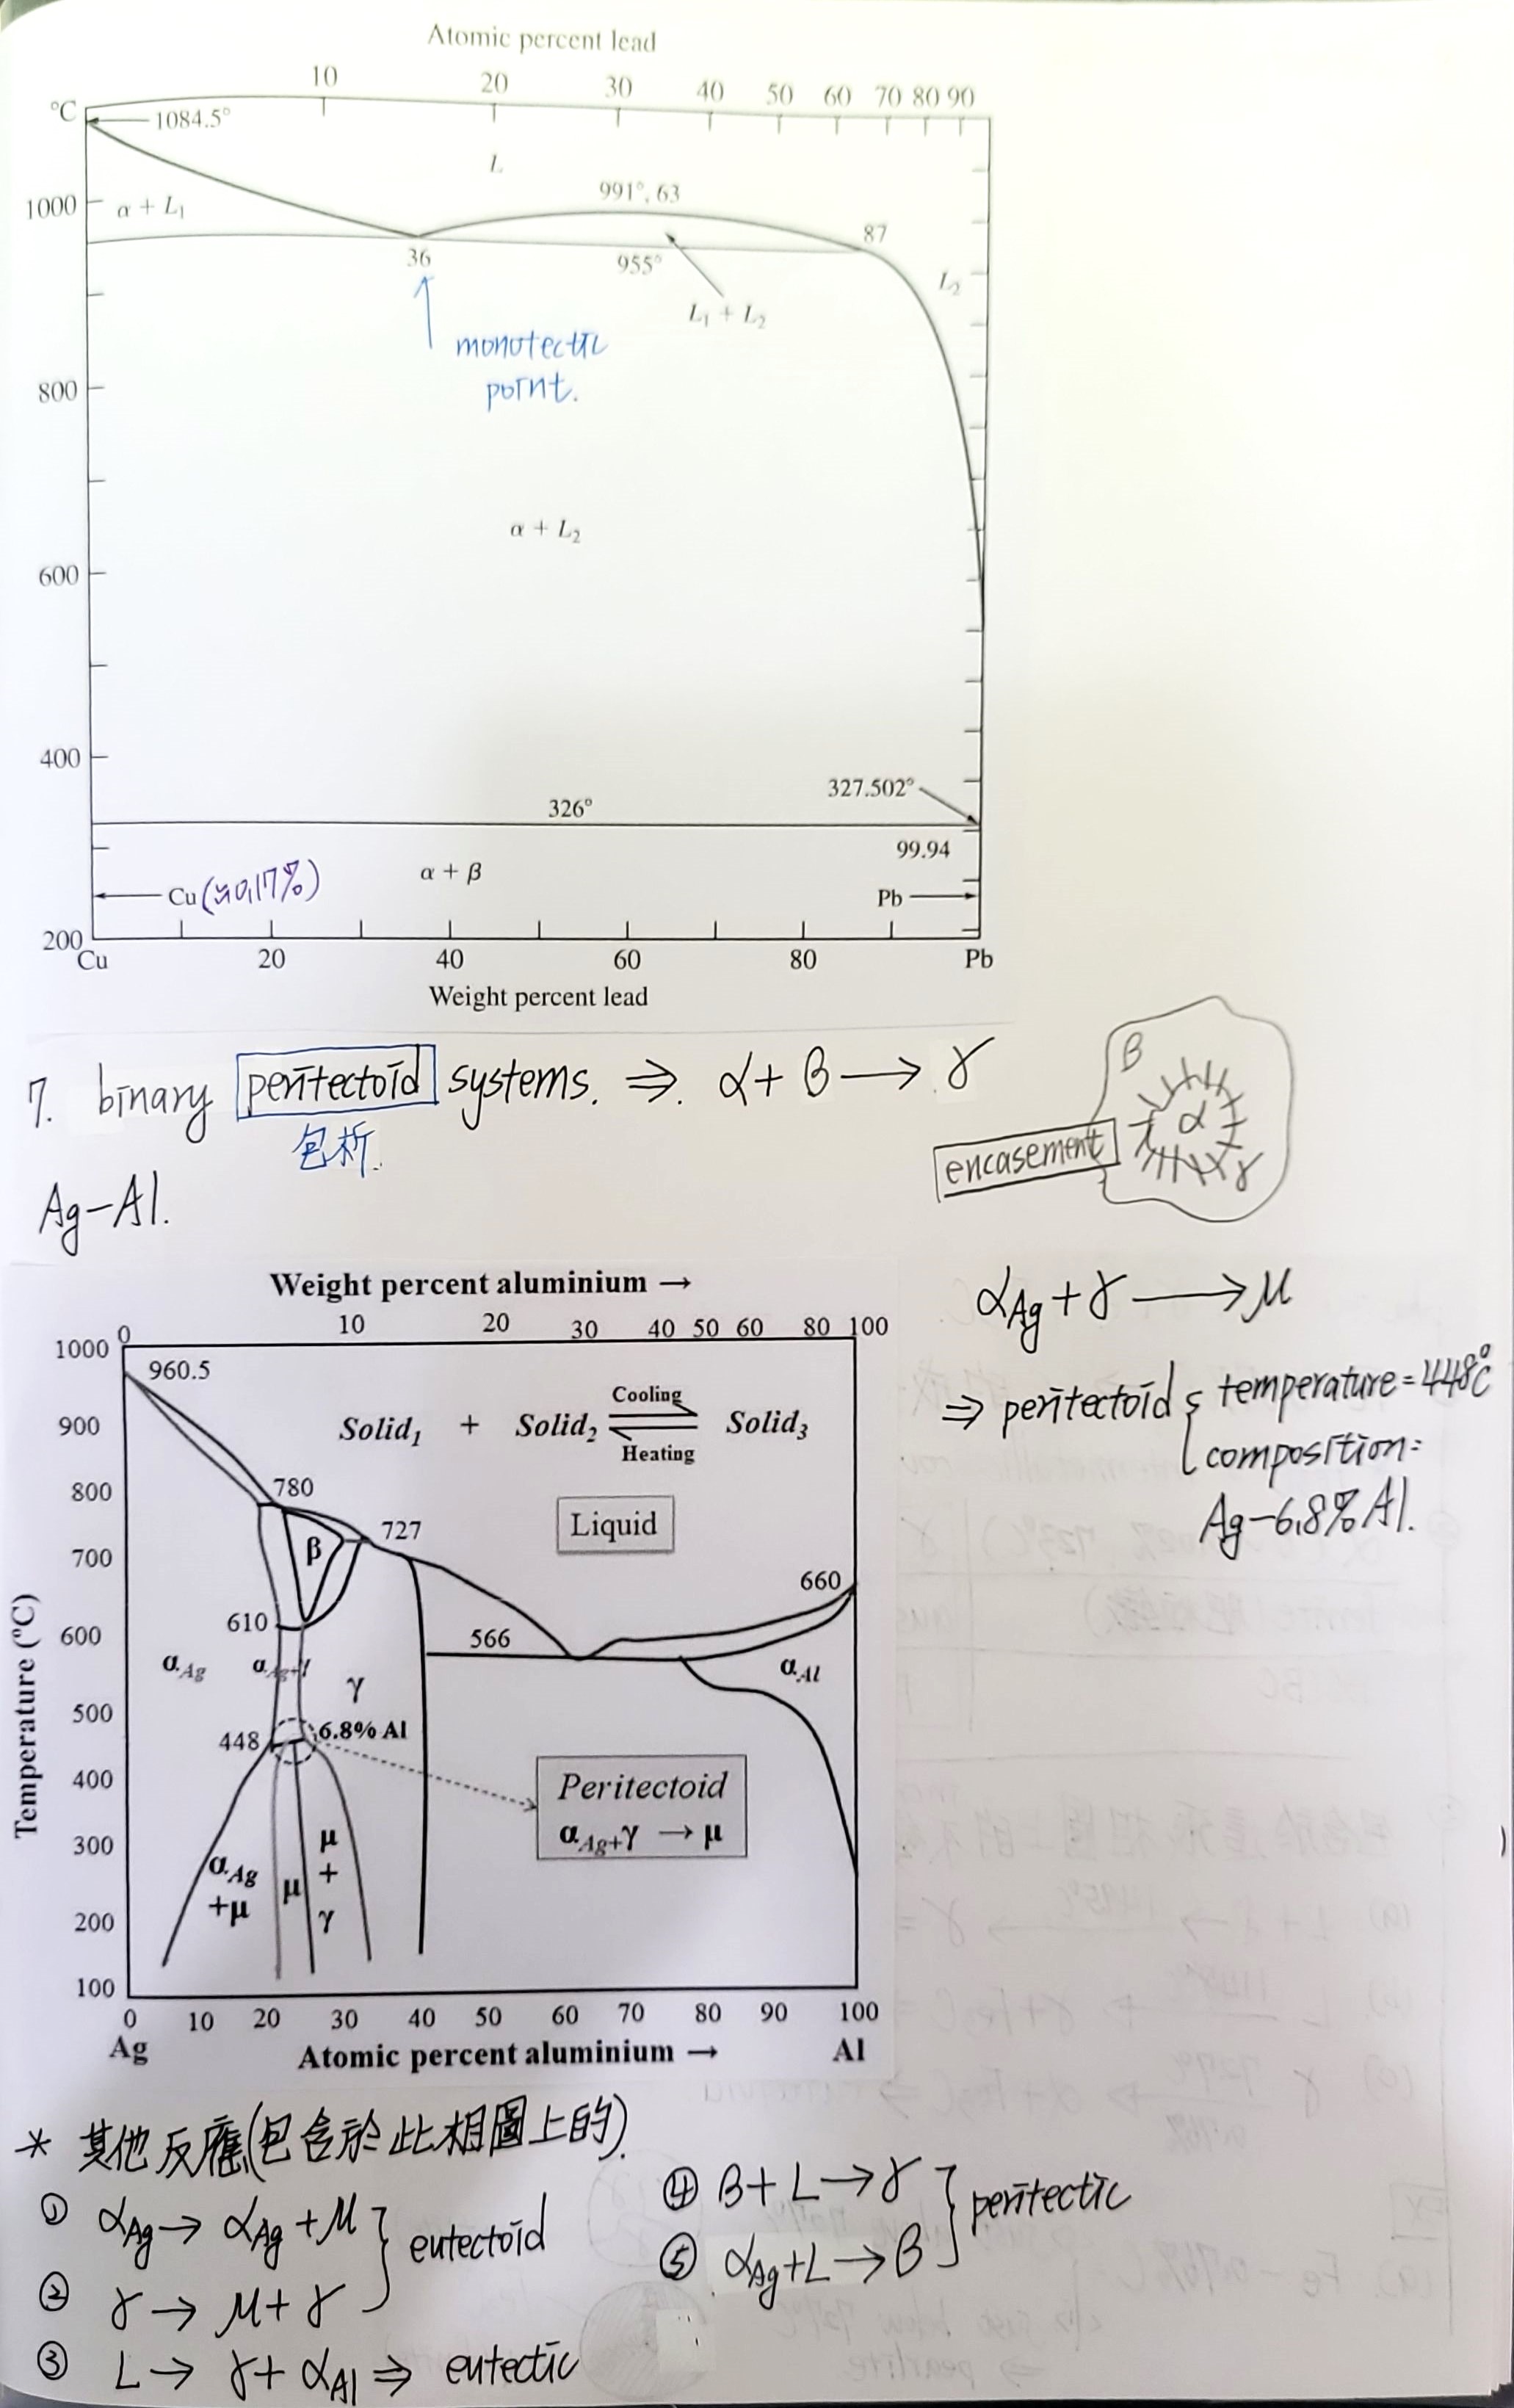 Atomic percent lead
10 20 30 40 50 60 70 80 90
°C
1084.5°
L
991°, 63
1000
α + L₁
87
36
955°
L₂
L₁ + L₂
monotectic
point.
800
α + L₂
600
400
327.502°
326°
99.94
α + β
Cu (≈0.17%)
Pb
200
Cu 20 40 60 80 Pb
Weight percent lead
7. binary peritectoid systems. ⇒. α + β → γ
包析.
β
α
γ
encasement
Ag-Al.
Weight percent aluminium →
0 10 20 30 40 50 60 80 100
1000
960.5
900
Solid₁ + Solid₂ ⇌ Solid₃
Cooling
Heating
800
780
Liquid
727
700
β
660
610
600
566
α_Ag
α_Ag+γ
γ
α_Al
500
448
6.8% Al
400
Peritectoid
α_Ag+γ → μ
300
α_Ag
+μ
μ
μ
+
γ
200
100
Temperature (°C)
0 10 20 30 40 50 60 70 80 90 100
Ag
Atomic percent aluminium →
Al
α_Ag + γ → μ
⇒ peritectoid { temperature = 448°C
composition =
Ag-6.8% Al.
* 其他反應(包含於此相圖上的).
① α_Ag → α_Ag + μ
② γ → μ + γ
} eutectoid
③ L → γ + α_Al ⇒ eutectic
④ β + L → γ
⑤ α_Ag + L → β
} peritectic